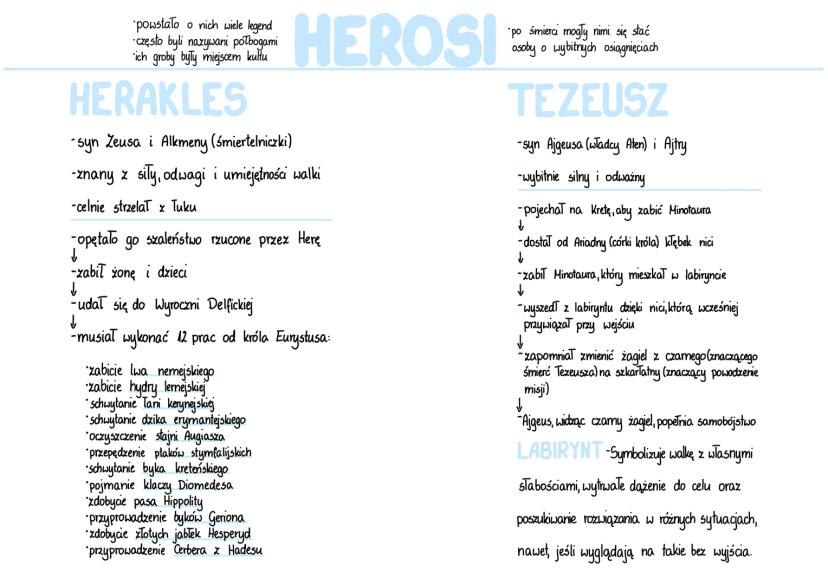 HEROSI
·powstało o nich wiele legend
·często byli nazywani półbogami
·ich groby były miejscem kultu
·po śmierci mogły nimi się stać
osoby o wybitnych osiągnięciach
HERAKLES
-syn Zeusa i Alkmeny (śmiertelniczki)
-znany z siły, odwagi i umiejętności walki
-celnie strzelał z łuku
-opętało go szaleństwo rzucone przez Herę
↓
-zabił żonę i dzieci
↓
-udał się do Wyroczni Delfickiej
↓
-musiał wykonać 12 prac od króla Eurystusa:
·zabicie lwa nemejskiego
·zabicie hydry lernejskiej
·schwytanie łani kerynejskiej
·schwytanie dzika erymantejskiego
·oczyszczenie stajni Augiasza
·przepędzenie ptaków stymfalijskich
·schwytanie byka kreteńskiego
·pojmanie klaczy Diomedesa
·zdobycie pasa Hippolity
·przyprowadzenie byków Geriona
·zdobycie złotych jabłek Hesperyd
·przyprowadzenie Cerbera z Hadesu
TEZEUSZ
-syn Ajgeusa (władcy Aten) i Ajtry
-wybitnie silny i odważny
-pojechał na Kretę, aby zabić Minotaura
↓
-dostał od Ariadny (córki króla) kłębek nici
↓
-zabił Minotaura, który mieszkał w labiryncie
↓
-wyszedł z labiryntu dzięki nici, którą wcześniej
przywiązał przy wejściu
↓
-zapomniał zmienić żagiel z czarnego (znaczącego
śmierć Tezeusza) na szkarłatny (znaczący powodzenie
misji)
↓
-Ajgeus, widząc czarny żagiel, popełnia samobójstwo
LABIRYNT -Symbolizuje walkę z własnymi
słabościami, wytrwałe dążenie do celu oraz
poszukiwanie rozwiązania w różnych sytuacjach,
nawet, jeśli wyglądają na takie bez wyjścia.